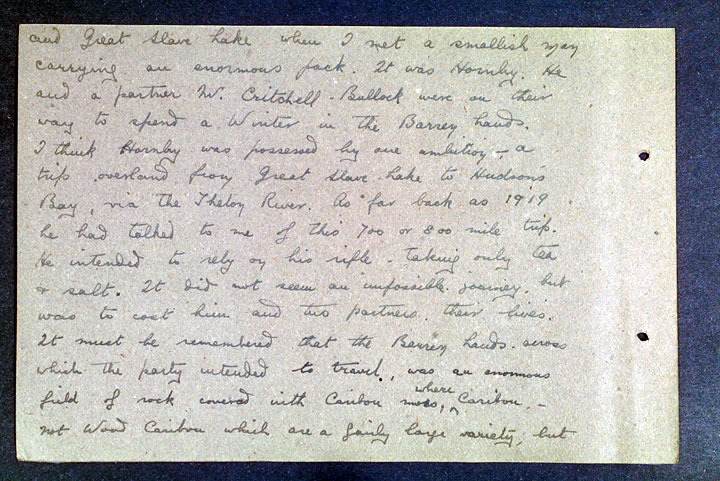 and Great Slave Lake when I met a smallish man
carrying an enormous pack. It was Hornby. He
and a partner Mr. Critchell-Bullock were on their
way to spend a Winter in the Barren Lands.
I think Hornby was possessed by one ambition - a
trip overland from Great Slave Lake to Hudsons
Bay, via the Thelon River. As far back as 1919
he had talked to me of this 700 or 800 mile trip.
He intended to rely on his rifle - taking only tea
& salt. It did not seem an impossible journey, but
was to cost him and two partners their lives.
It must be remembered that the Barren Lands across
which the party intended to travel, was an enormous
field of rock covered with Caribou moss, where Caribou -
not Wood Caribou which are a fairly large variety, but